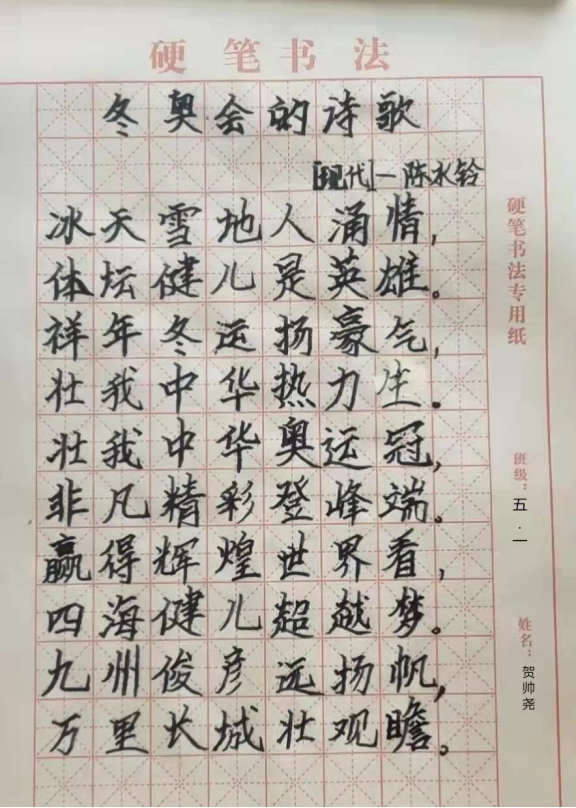 硬笔书法
冬奥会的诗歌
[现代]一陈水铃
冰天雪地人涌情，
体坛健儿是英雄。
祥年冬运扬豪气，
壮我中华热力生。
壮我中华奥运冠，
非凡精彩登峰端。
赢得辉煌世界看，
四海健儿超越梦。
九州俊彦远扬帆，
万里长城壮观瞻。
硬笔书法专用纸
班级：五.一
姓名：贺帅尧